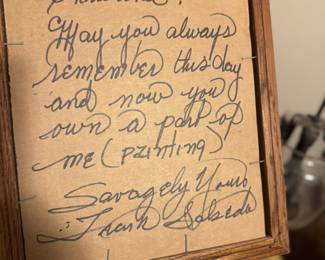 May you always
remember this day
and now you
own a part of
me (painting)
Savagely Yours,
Frank Salcedo